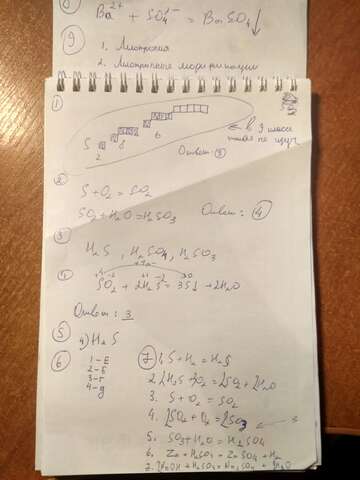 8
Ba²⁺ + SO₄²⁻ = BaSO₄↓
9
1. Аллотропия
2. Аллотропные модификации
1
S
2 8 6
Ответ: 3
← в 9 классе такое не изуч.
2
S + O₂ = SO₂
SO₂ + H₂O = H₂SO₃
Ответ: 4
3
H₂S, H₂SO₄, H₂SO₃
4
+4 -2 +1 -2 3 0
SO₂ + 2H₂S = 3S↓ + 2H₂O
Ответ: 3
5
4) H₂S
6
1 - Е
2 - Б
3 - Г
4 - Д
7
1. S + H₂ = H₂S
2. 2H₂S + 3O₂ = 2SO₂ + 2H₂O
3. S + O₂ = SO₂
4. 2SO₂ + O₂ = 2SO₃
5. SO₃ + H₂O = H₂SO₄
6. Zn + H₂SO₄ = ZnSO₄ + H₂
7. 2NaOH + H₂SO₄ = Na₂SO₄ + 2H₂O